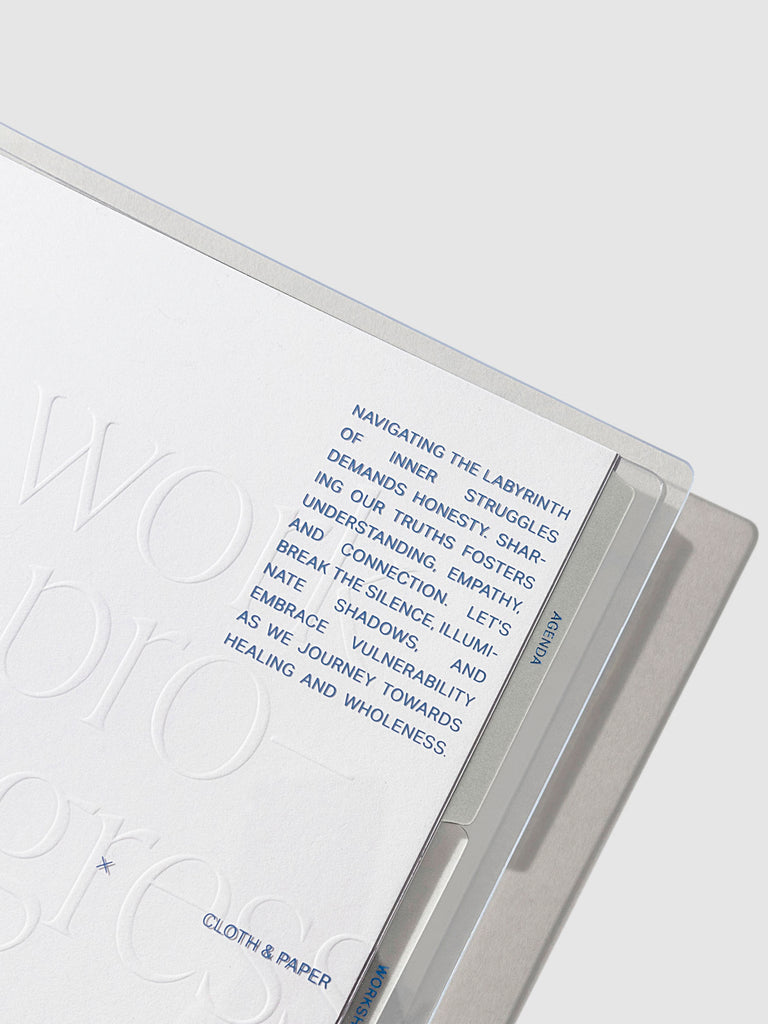 work
pro-
gress
NAVIGATING THE LABYRINTH
OF INNER STRUGGLES
DEMANDS HONESTY. SHAR-
ING OUR TRUTHS FOSTERS
UNDERSTANDING, EMPATHY,
AND CONNECTION. LET'S
BREAK THE SILENCE, ILLUMI-
NATE SHADOWS, AND
EMBRACE VULNERABILITY
AS WE JOURNEY TOWARDS
HEALING AND WHOLENESS.
CLOTH & PAPER
AGENDA
WORKSH